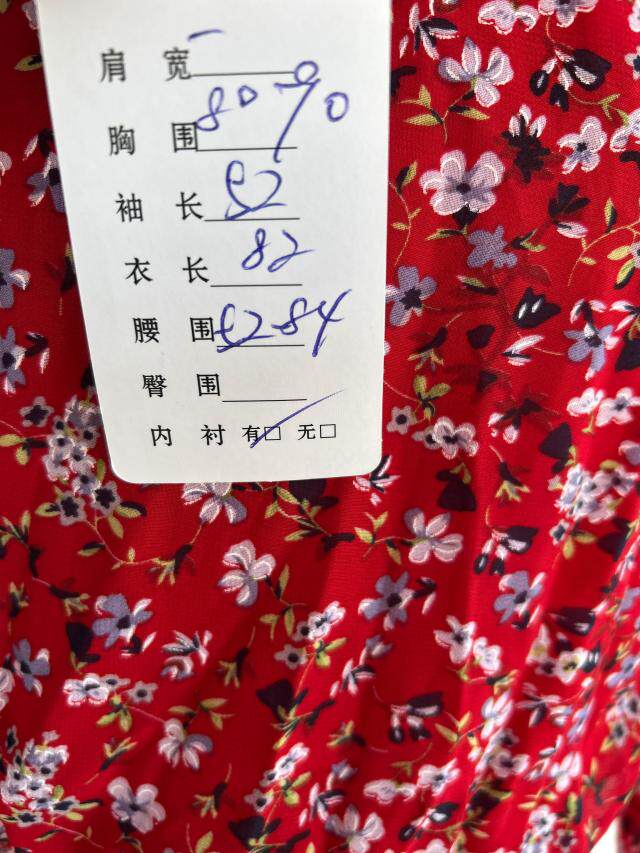 肩 宽 —
胸 围 80-90
袖 长 52
衣 长 82
腰 围 52-84
臀 围
内 衬 有☑ 无□